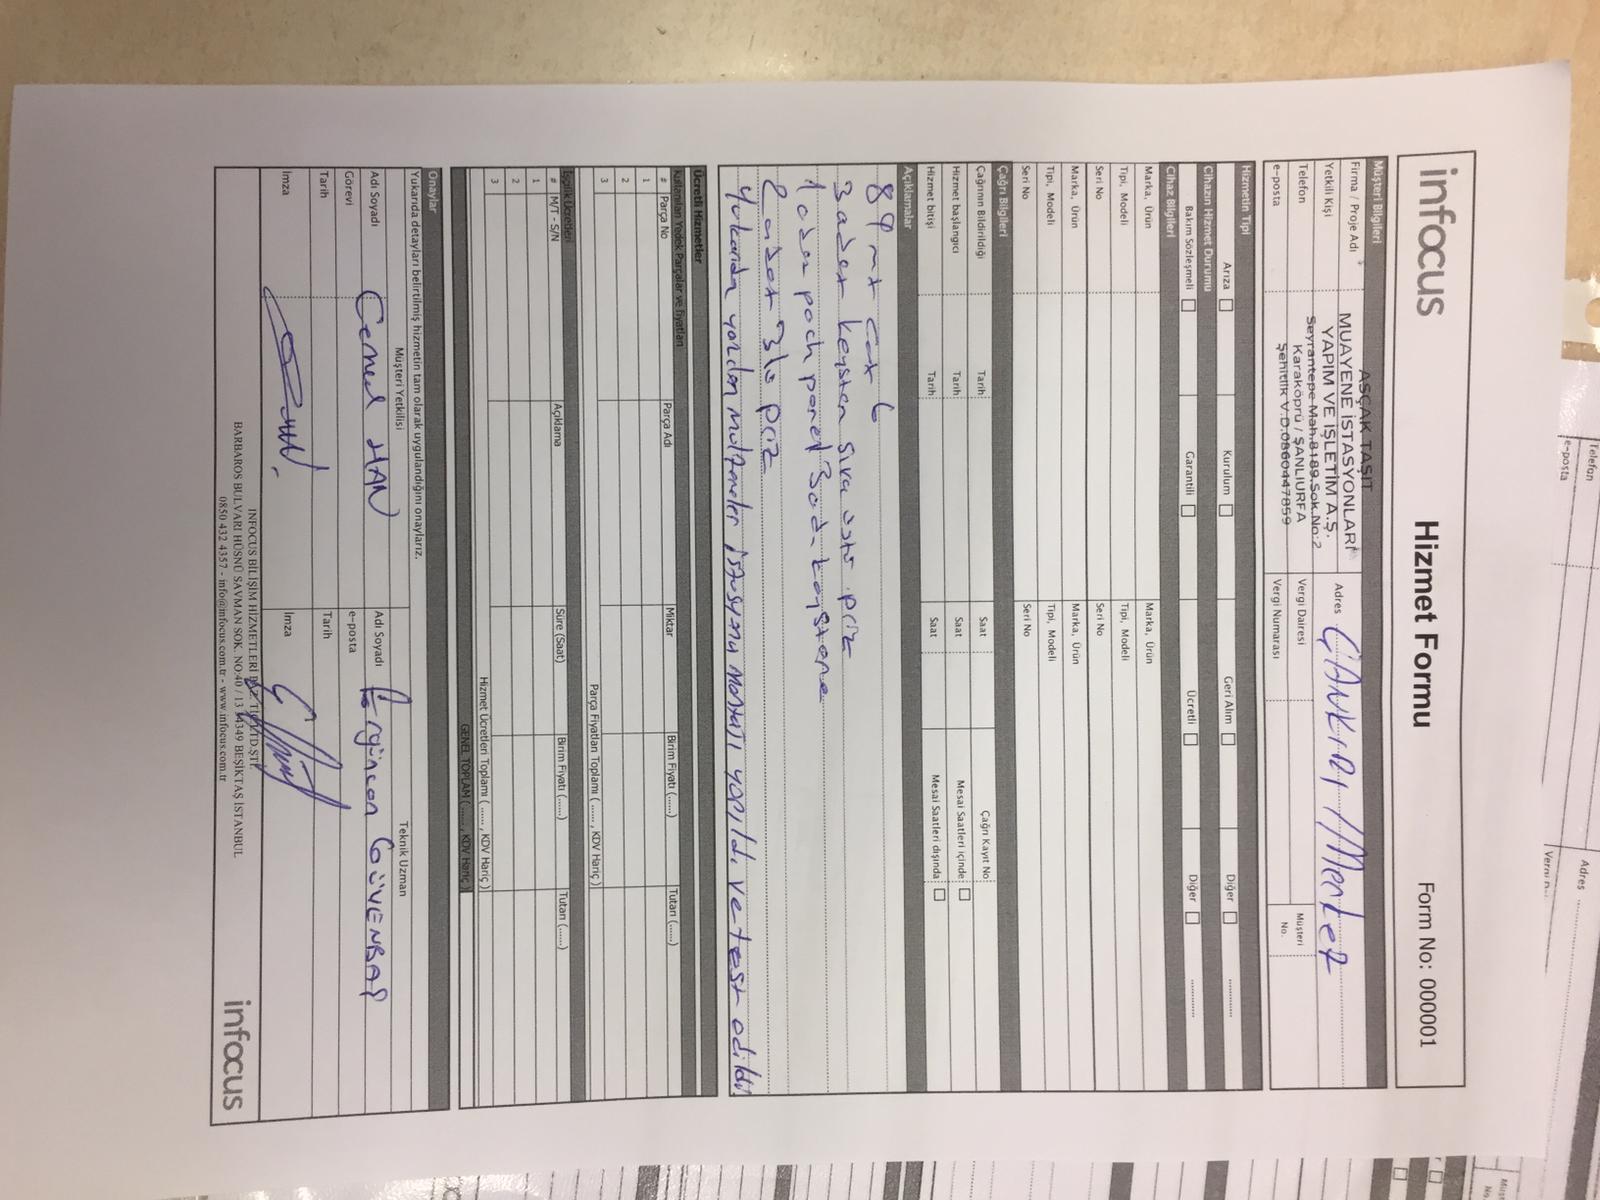 infocus
Hizmet Formu
Form No: 000001
Müşteri Bilgileri
Firma / Proje Adı
ASÇAK TAŞIT
MUAYENE İSTASYONLARI
YAPIM VE İŞLETİM A.Ş.
Seyrantepe Mah.8189.Sok.No:2
Karaköprü / ŞANLIURFA
Şehitlik V.D.0860447859
Adres ÇANKIRI / Merkez
Yetkili Kişi
Telefon Vergi Dairesi Müşteri No.
e-posta Vergi Numarası
Hizmetin Tipi
Arıza Kurulum Geri Alım Diğer ............
Cihazın Hizmet Durumu
Bakım Sözleşmeli Garantili Ücretli Diğer ............
Cihaz Bilgileri
Marka, Ürün Marka, Ürün
Tipi, Modeli Tipi, Modeli
Seri No Seri No
Marka, Ürün Marka, Ürün
Tipi, Modeli Tipi, Modeli
Seri No Seri No
Çağrı Bilgileri
Çağrının Bildirildiği Tarih Saat Çağrı Kayıt No
Hizmet başlangıcı Tarih Saat Mesai Saatleri içinde
Hizmet bitişi Tarih Saat Mesai Saatleri dışında
Açıklamalar
89 mt cat 6
3 adet keysten sıva üstü priz
1 adet pach panel 3 ad. keystone
2 adet 3lü priz
Yukarıda yazılan malzemeler istasyona montajı yapıldı ve test edildi
Ücretli Hizmetler
Kullanılan Yedek Parçalar ve fiyatları
# Parça No Parça Adı Miktar Birim Fiyatı (......) Tutarı (......)
1
2
3
Parça Fiyatları Toplamı (......, KDV Hariç)
İşçilik Ücretleri
# M/T - S/N Açıklama Süre (Saat) Birim Fiyatı (......) Tutarı (......)
1
2
3
Hizmet Ücretleri Toplamı (......, KDV Hariç)
GENEL TOPLAM (......, KDV Hariç)
Onaylar
Yukarıda detayları belirtilmiş hizmetin tam olarak uygulandığını onaylarız.
Müşteri Yetkilisi Teknik Uzman
Adı Soyadı Cemel HAN Adı Soyadı Ergüncan GÜVENBAŞ
Görevi e-posta
Tarih Tarih
İmza İmza
INFOCUS BİLİŞİM HİZMETLERİ PAZ. TİC. LTD.ŞTİ.
BARBAROS BULVARI HÜSNÜ SAVMAN SOK. NO:40 / 13 34349 BEŞİKTAŞ İSTANBUL
0850 432 4357 - info@infocus.com.tr - www.infocus.com.tr
infocus
Telefon
e-posta
Adres ............